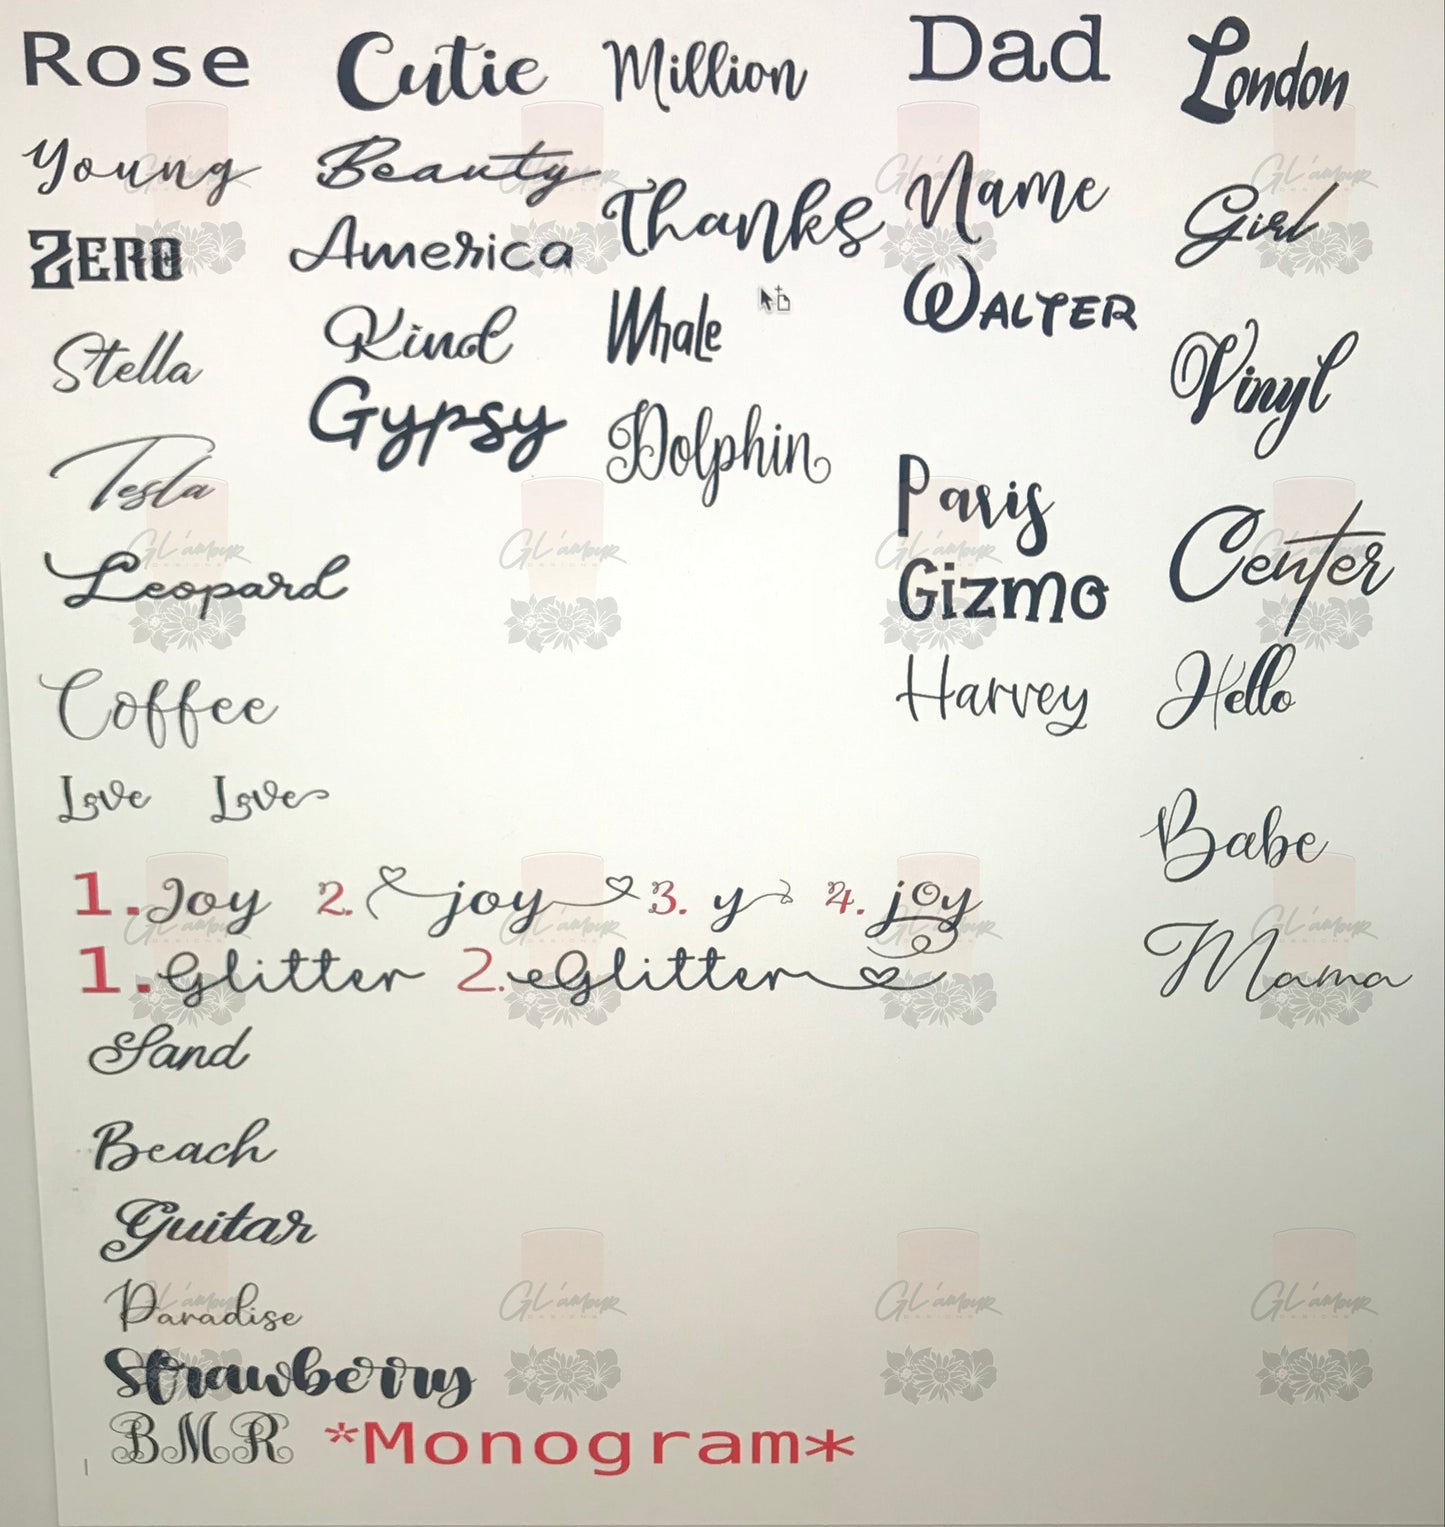 Rose Cutie Million Dad London
Young Beauty Thanks Name Girl
ZERO America Whale WALTER
Stella Kind Dolphin Vinyl
Tesla Gypsy Paris Center
Leopard Gizmo
Coffee Harvey Hello
Love Love Babe
1. Joy 2. joy 3. y 4. joy
1. Glitter 2. Glitter Mama
Sand
Beach
Guitar
Paradise
Strawberry
BMR *Monogram*
GL'amour
DESIGNS